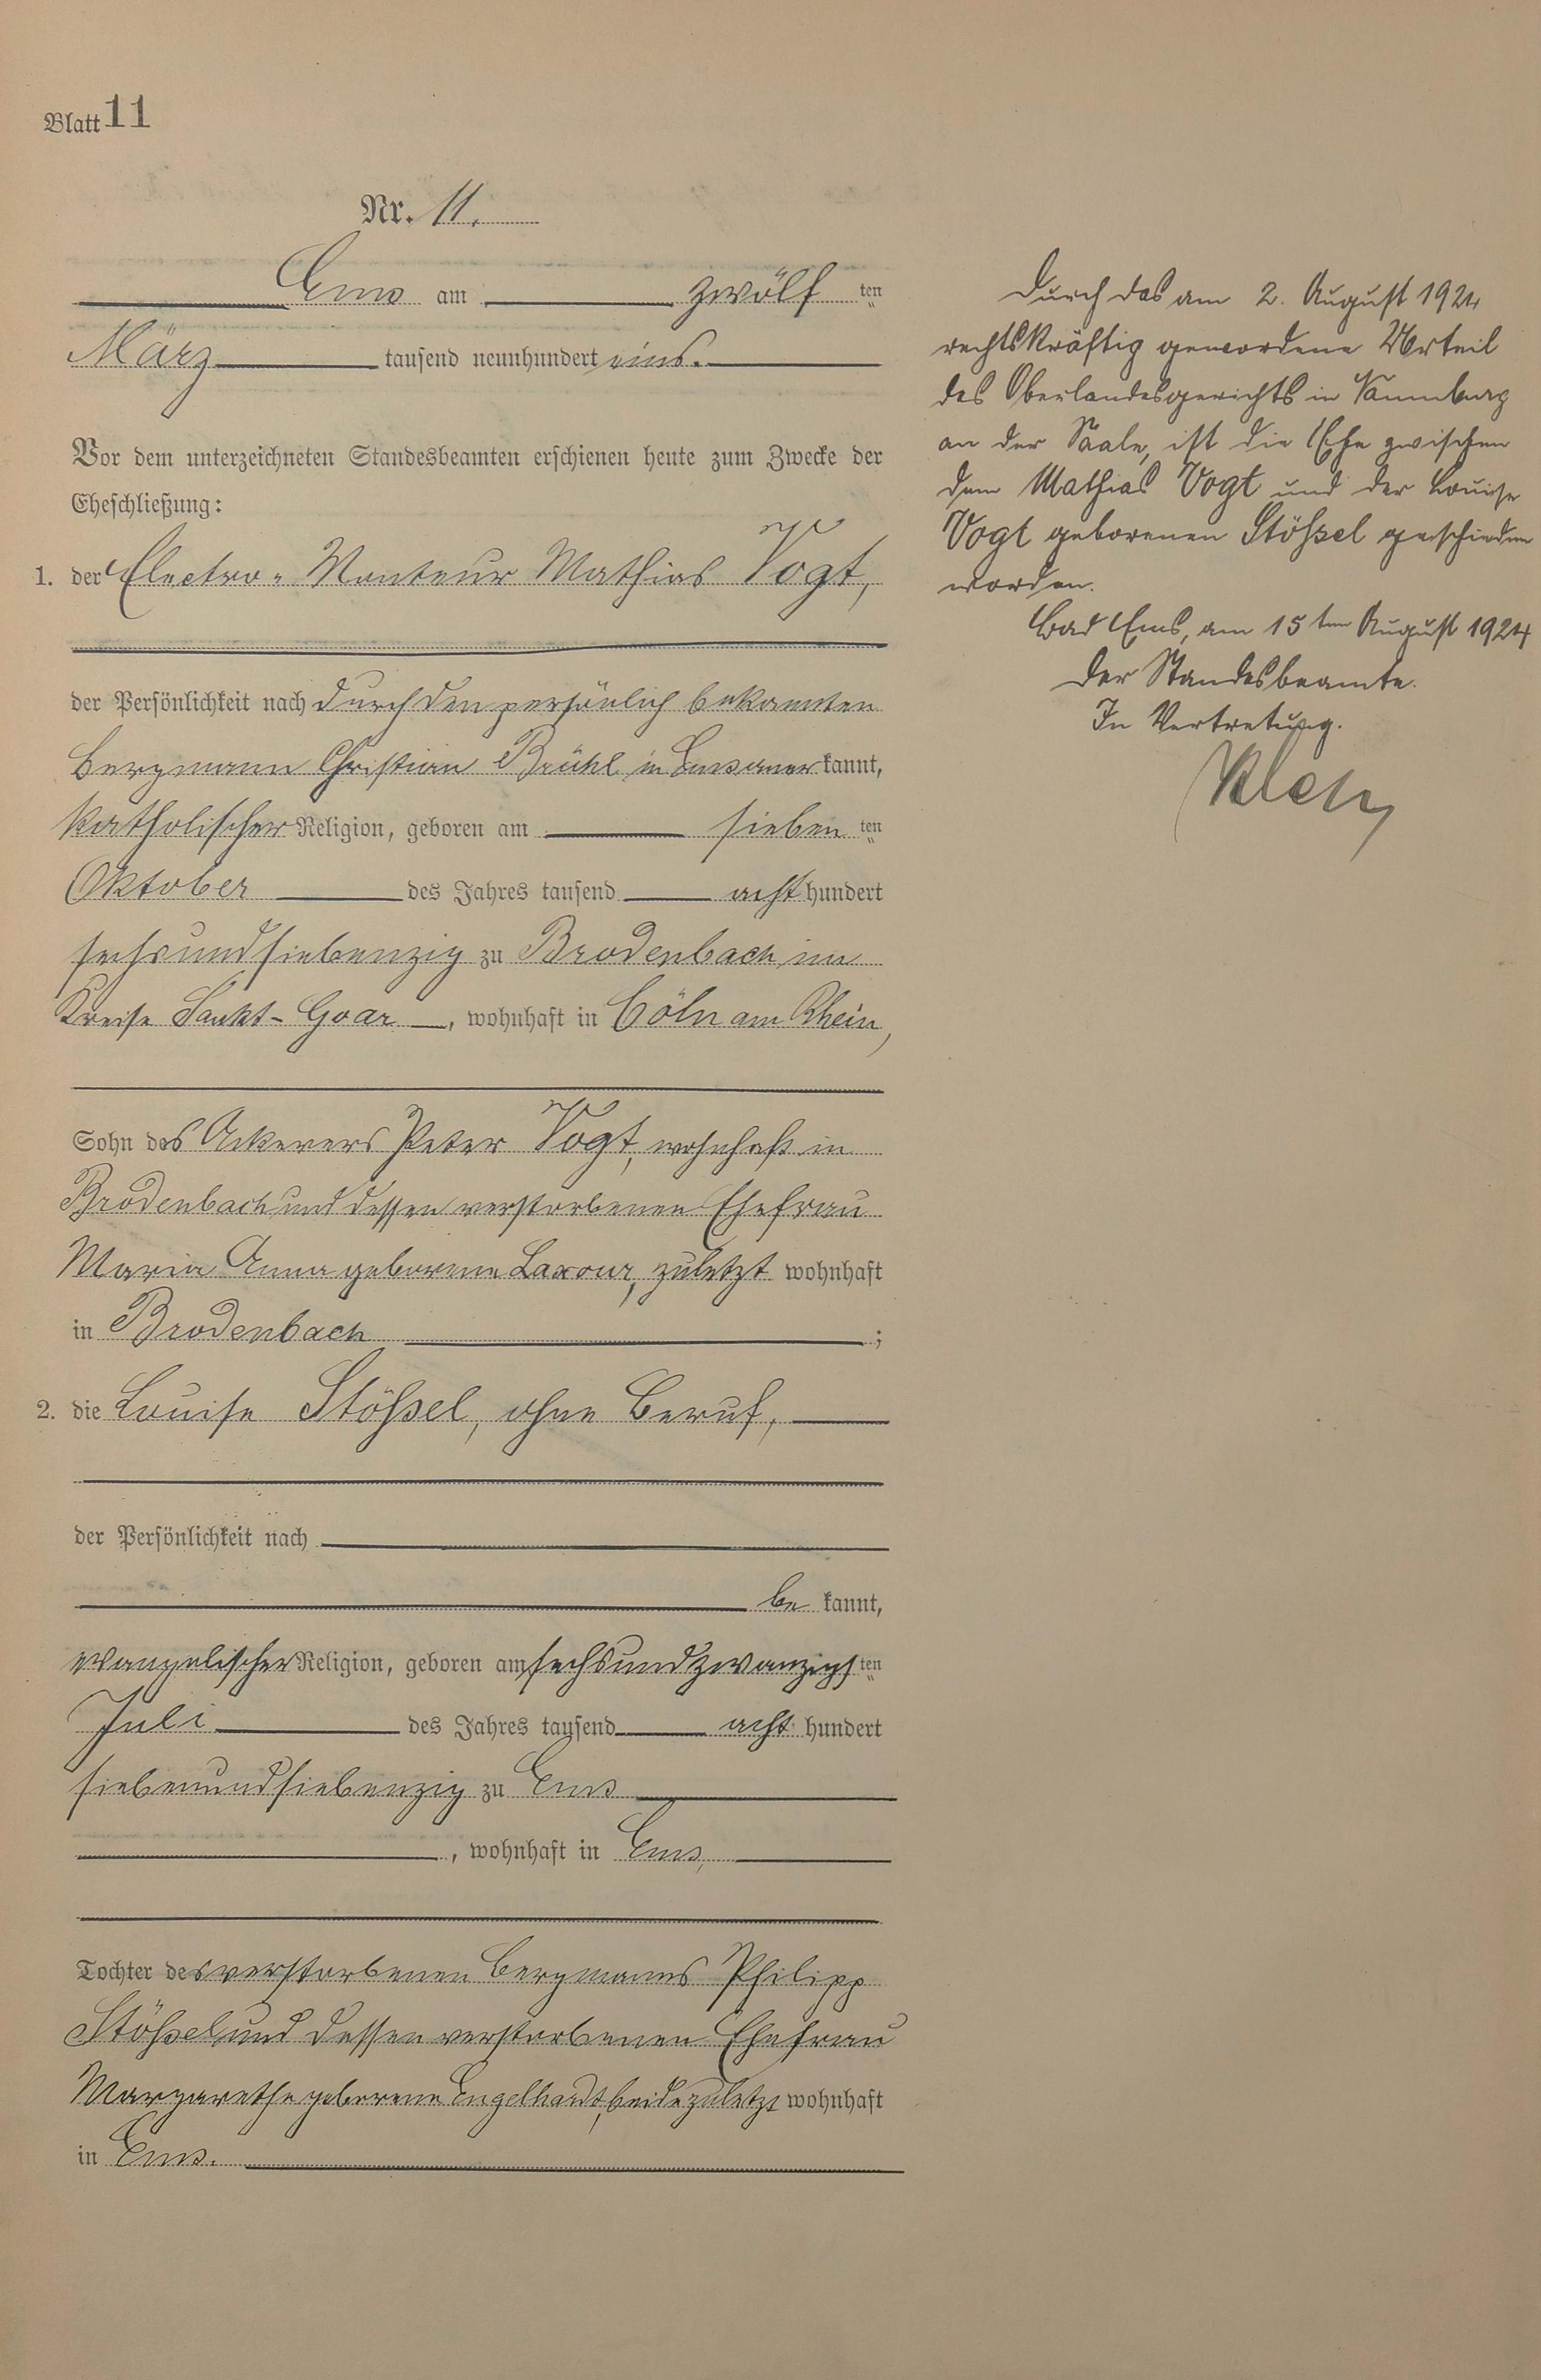 Blatt 11
Nr. 11.
Ems am zwölf ten
März tausend neunhundert eins.
Vor dem unterzeichneten Standesbeamten erschienen heute zum Zwecke der
Eheschließung:
1. der Electro-Monteur Mathias Vogt,
der Persönlichkeit nach durch den persönlich bekannten
Bergmann Christian Brühl in Ems aner kannt,
katholischer Religion, geboren am sieben ten
Oktober des Jahres tausend acht hundert
sechsundsiebenzig zu Brodenbach im
Kreise Sankt-Goar, wohnhaft in Cöln am Rhein,
Sohn des Ackerers Peter Vogt, wohnhaft in
Brodenbach und dessen verstorbenen Ehefrau
Maria Anna geborene Laxour, zuletzt wohnhaft
in Brodenbach ;
2. die Louise Stößel, ohne Beruf,
der Persönlichkeit nach
be kannt,
evangelischer Religion, geboren am sechsundzwanzigs ten
Juli des Jahres tausend acht hundert
siebenundsiebenzig zu Ems
, wohnhaft in Ems,
Tochter des verstorbenen Bergmanns Philipp
Stößel und dessen verstorbenen Ehefrau
Margarethe geborene Engelhardt, beide zuletzt wohnhaft
in Ems.
Durch das am 2. August 1924
rechtskräftig gewordene Urteil
des Oberlandesgerichts in Naumburg
an der Saale, ist die Ehe zwischen
dem Mathias Vogt und der Louise
Vogt geborenen Stößel geschieden
worden.
Bad Ems, am 15ten August 1924
Der Standesbeamte.
In Vertretung.